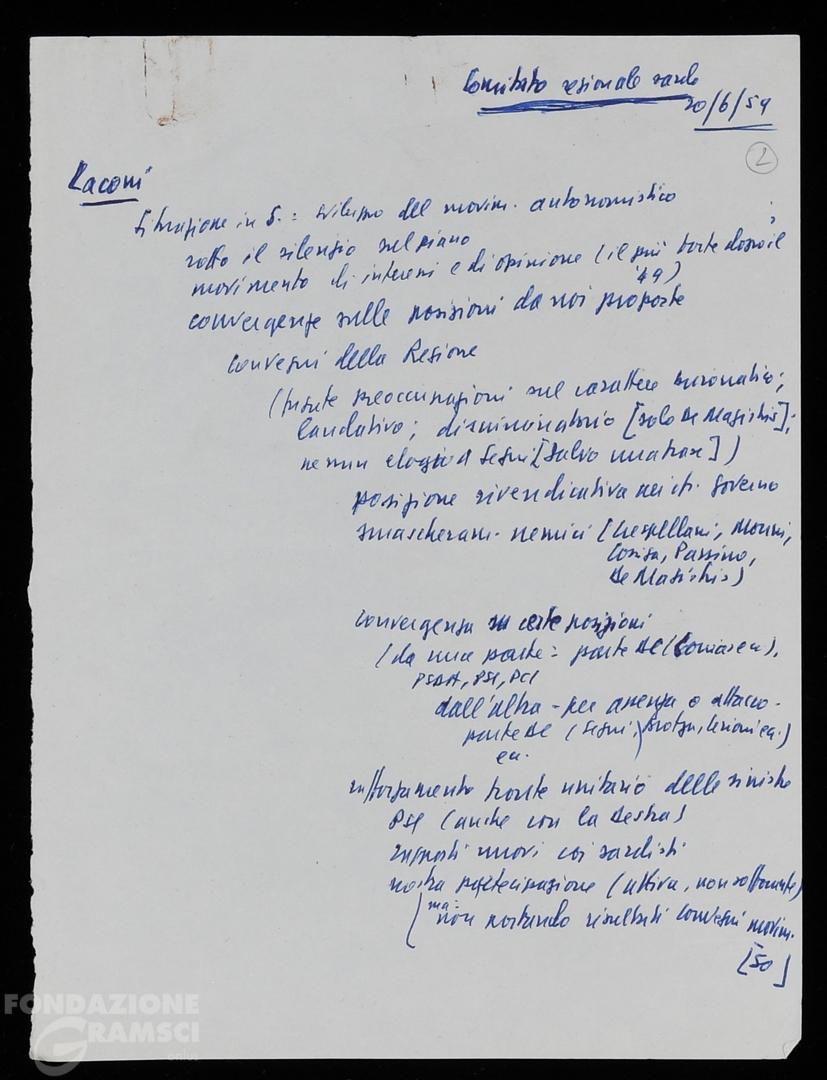 Comitato regionale sardo
20/6/59
2
Laconi
Situazione in S.: sviluppo del movim. autonomistico
rotto il silenzio sul piano
movimento di interessi e di opinione (il più forte dopo il
'49)
convergenze sulle posizioni da noi proposte
convegni della Regione
(fugate preoccupazioni sul carattere ;
laudativo; discriminatorio [solo De Magistris];
nessun elogio a Segni [salvo una frase])
posizione rivendicativa nei cfr. Governo
smascheram. nemici (Crespellani, Murru,
Passino,
De Magistris)
convergenza su certe posizioni
(da una parte: parte DC ( ecc.),
PSDA, PSI, PCI
dall'altra - per assenza o attacco -
parte DC (Segni, ecc.)
ecc.
rafforzamento fronte unitario delle sinistre
PSI (anche con la Destra)
rapporti nuovi coi sardisti
nostra partecipazione (attiva, non )
ma non portando risultati convegni movim.
[50]
FONDAZIONE
GRAMSCI
onlus